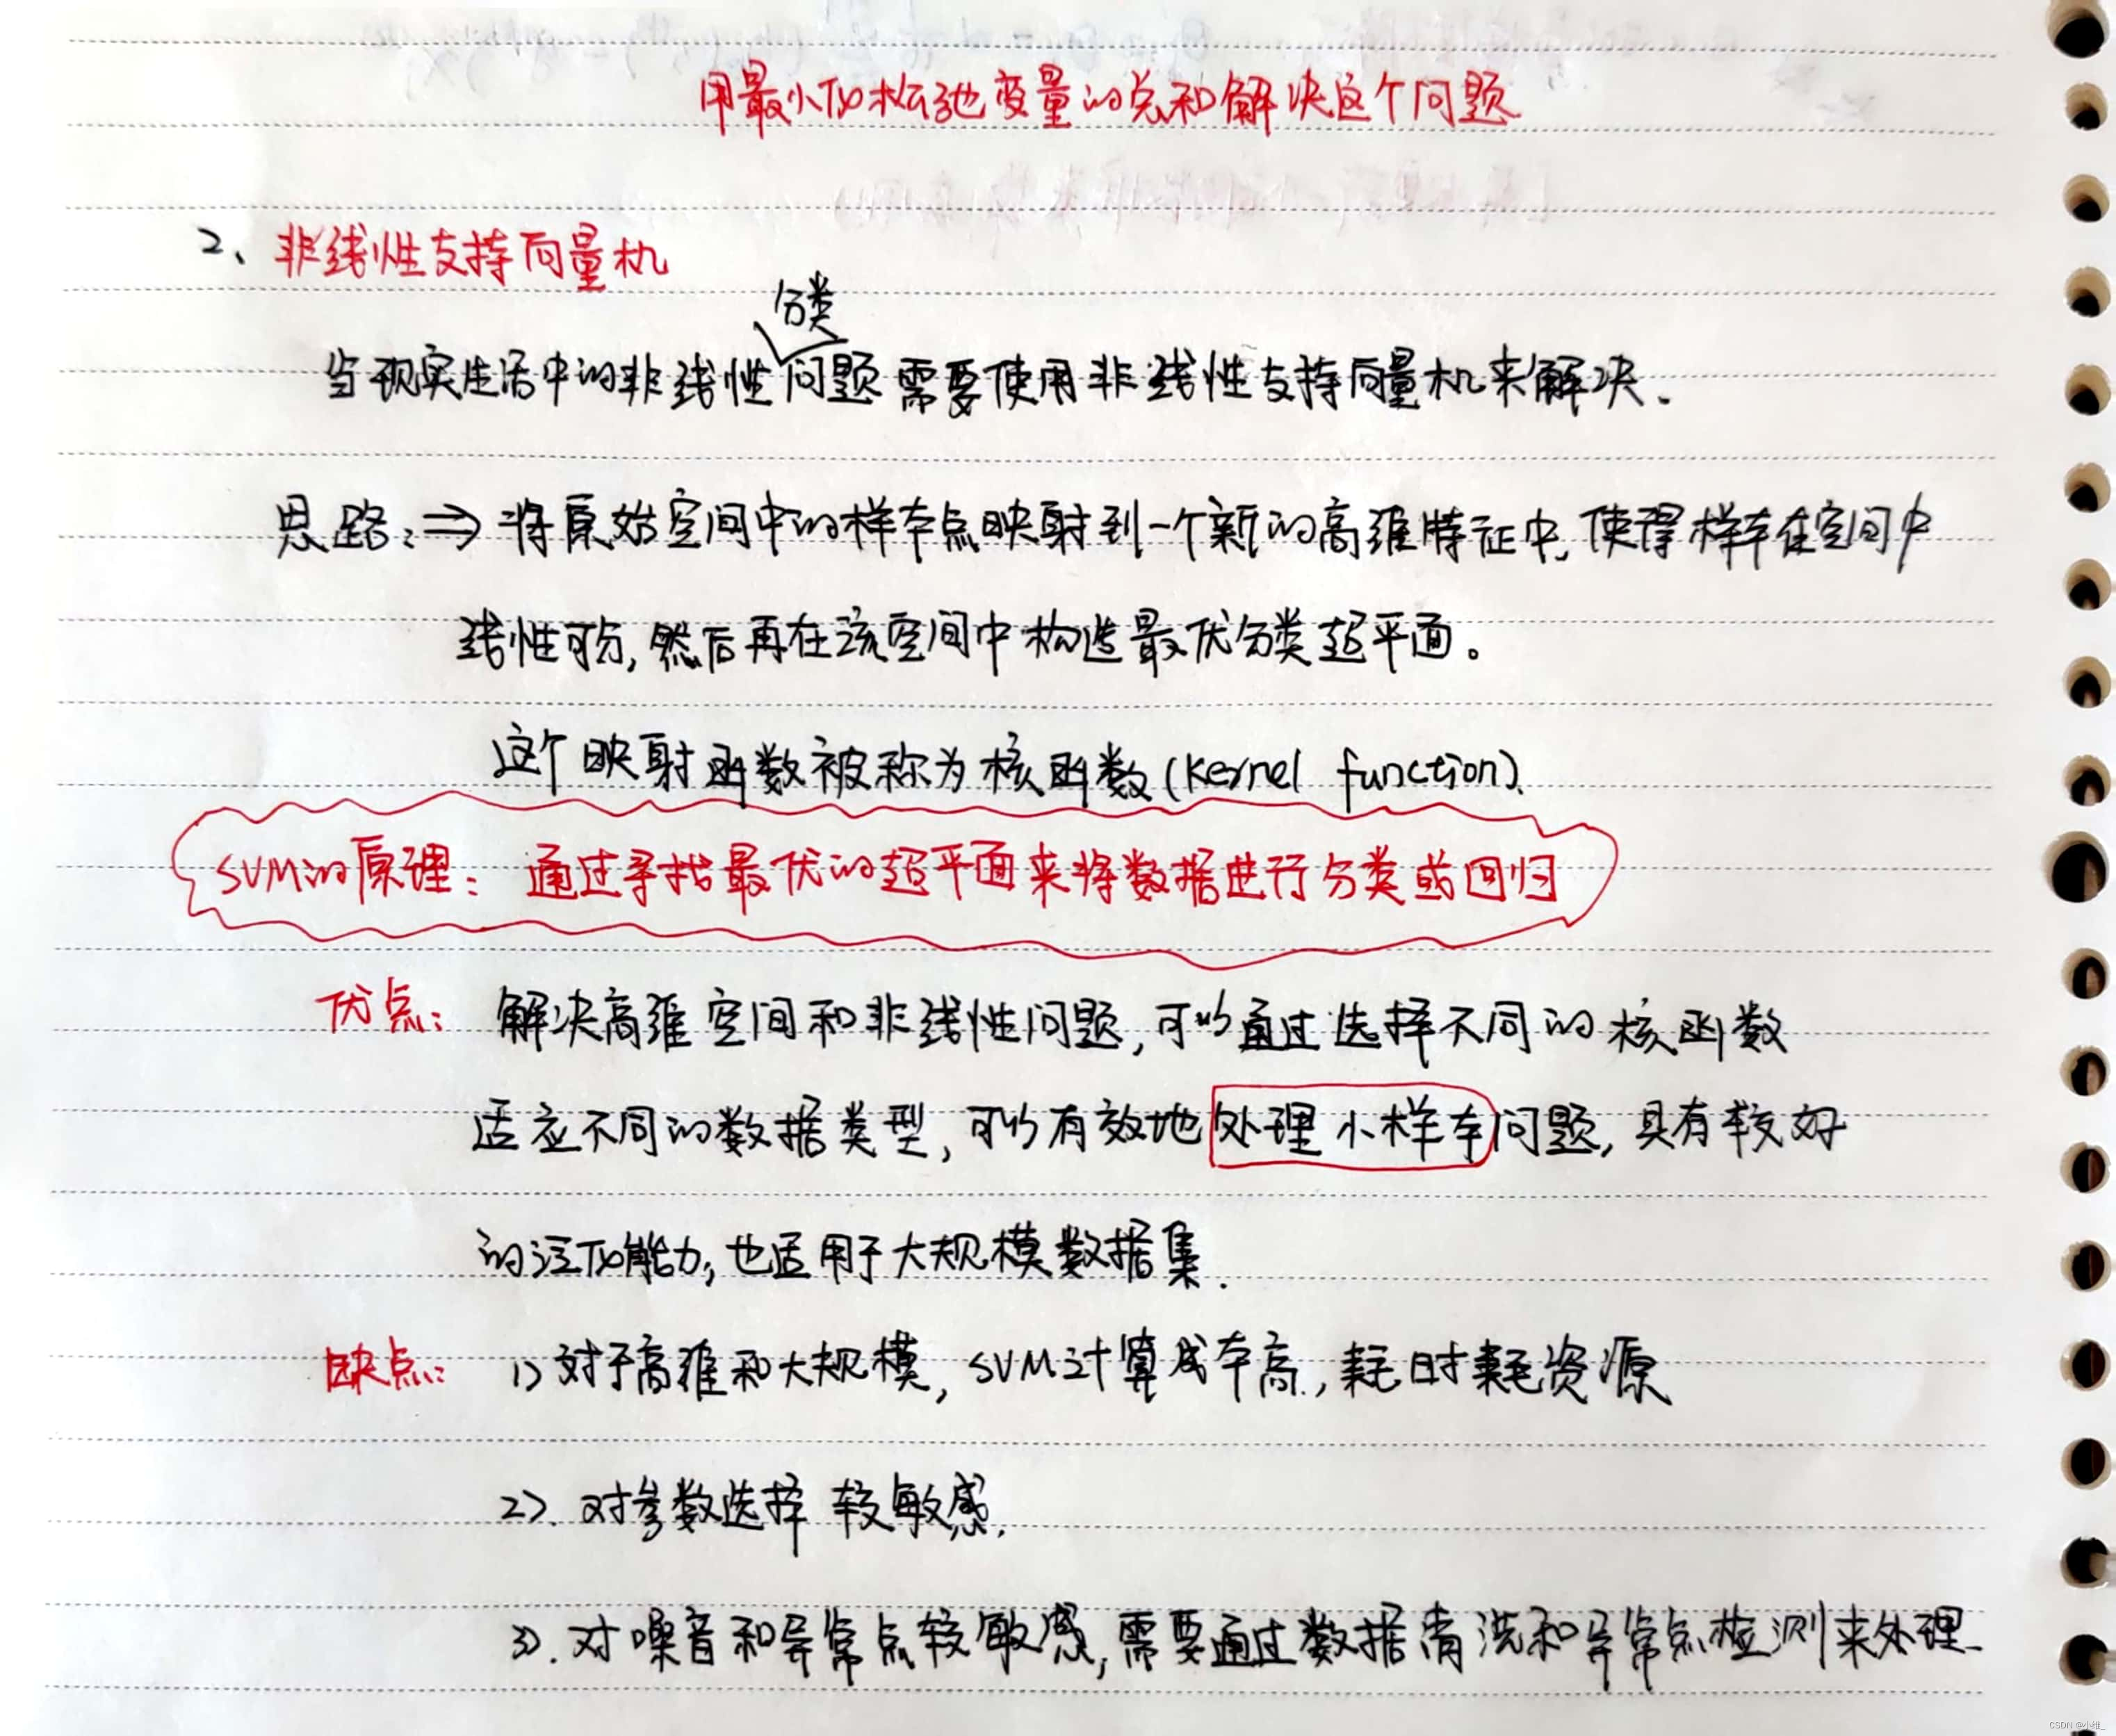 用最小化松弛变量的总和解决这个问题
2、非线性支持向量机
分类
当现实生活中的非线性问题需要使用非线性支持向量机来解决.
思路:⇒将原始空间中的样本点映射到一个新的高维特征中,使得样本在空间中
线性可分,然后再在该空间中构造最优分类超平面。
这个映射函数被称为核函数(Kernel function).
SVM的原理: 通过寻找最优的超平面来将数据进行分类或回归
优点: 解决高维空间和非线性问题,可以通过选择不同的核函数
适应不同的数据类型,可以有效地处理小样本问题,具有较好
的泛化能力,也适用于大规模数据集.
缺点: 1)对于高维和大规模,SVM计算成本高,耗时耗资源
2).对参数选择较敏感.
3).对噪音和异常点较敏感,需要通过数据清洗和异常点检测来处理.
CSDN @小维_